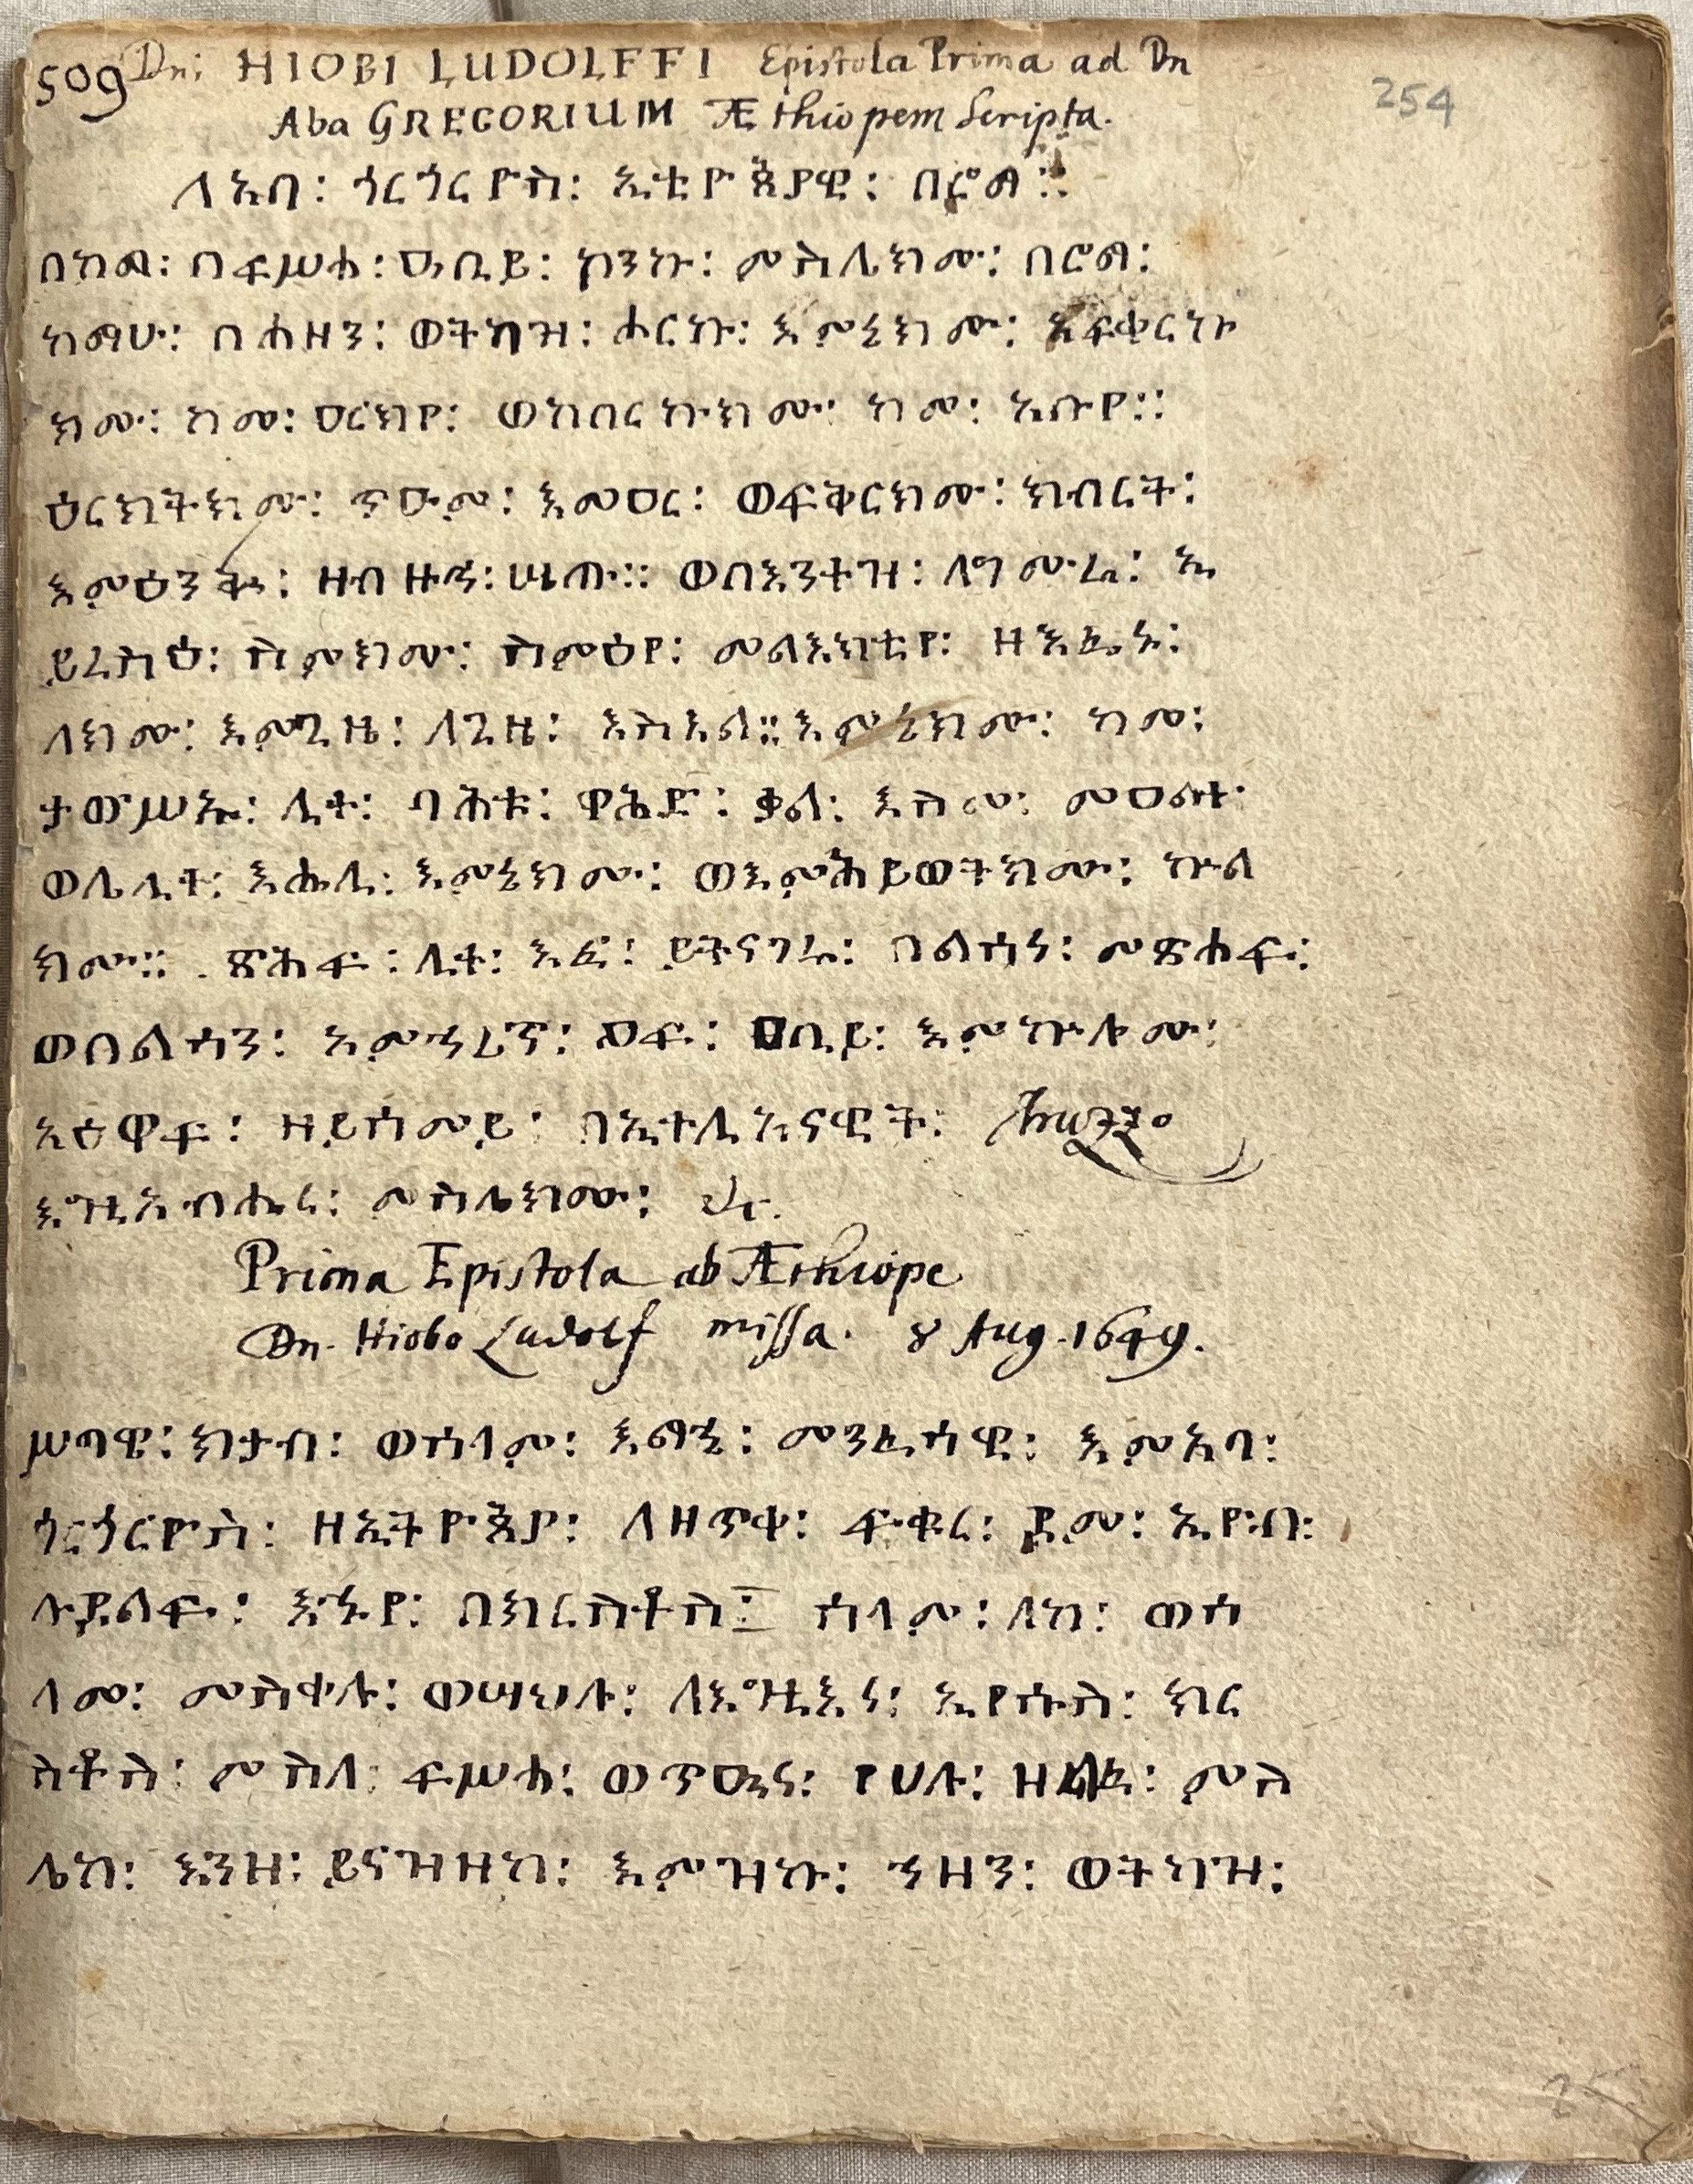 509 Dn: HIOBI LUDOLFFI Epistola Prima ad Dn
254
Aba GREGORIUM Æthiopem Scripta.
ለአባ፡ ጎርጎርዮስ፡ ኢቲዮጵያዊ፡ በሮማ።
በከመ፡ በፍሥሐ፡ ዐቢይ፡ ኮንኩ፡ ምስሌክሙ፡ በሮማ፡
ከማሁ፡ በሐዘን፡ ወትካዝ፡ ሖርኩ፡ እምኔክሙ፡ አፍቀርኩ
ክሙ፡ ከመ፡ ዐርክየ፡ ወአክበርኩክሙ፡ ከመ፡ አቡየ።
ዕርክትክሙ፡ ጥዑም፡ እመዐር፡ ወፍቅርክሙ፡ ክብርት፡
እምዕንቍ፡ ዘብዙኅ፡ ሤጡ። ወበእንተዝ፡ ለግሙራ፡ ኢ
ይረስዕ፡ ስምክሙ፡ ስምዕየ፡ መልእክትየ፡ ዘእፌኑ፡
ለክሙ፡ እምጊዜ፡ ለጊዜ፡ እስእል። እምኔክሙ፡ ከመ፡
ታወሥኡ፡ ሊተ፡ ባሕቱ፡ ዋሕድ፡ ቃል፡ እስመ፡ መዐልተ
ወሌሊተ፡ እሔሊ፡ እምኔክሙ፡ ወእምሕይወትክሙ፡ ኵል
ክሙ። ጸሐፍ፡ ሊተ፡ እፎ፡ ይትናገሩ፡ በልሳነ፡ መጽሐፍ፡
ወበልሳን፡ አምኃረኛ፡ ዖፍ፡ ዐቢይ፡ እምኵሎሙ፡
አዕዋፍ፡ ዘይሰመይ፡ በኢተሊአናዊት፡ Struzzo
እግዚአብሔር፡ ምስሌክሙ፡ &c.
Prima Epistola ab Æthiope
Dn. Hiobo Ludolf missa. 8 Aug. 1649.
ሠናዊ፡ ክታብ፡ ወሰላም፡ እማኔ፡ መንፈሳዊ፡ እምአባ፡
ጎርጎርዮስ፡ ዘኢትዮጵያ፡ ለዘጥቀ፡ ፍቁር፡ ዮም፡ ኢዮብ፡
ሉዶልፍ፡ እኁየ፡ በክርስቶስ፡ ሰላም፡ ለከ፡ ወሰ
ላመ፡ መስቀሉ፡ ወሣህሉ፡ ለእግዚእነ፡ ኢየሱስ፡ ክር
ስቶስ፡ ምስለ፡ ፍሥሐ፡ ወጥዒና፡ የሀሉ፡ ዘልፈ፡ ምስ
ሌከ፡ እንዘ፡ ይናዝዘከ፡ እምዝኩ፡ ኀዘን፡ ወትካዝ፡